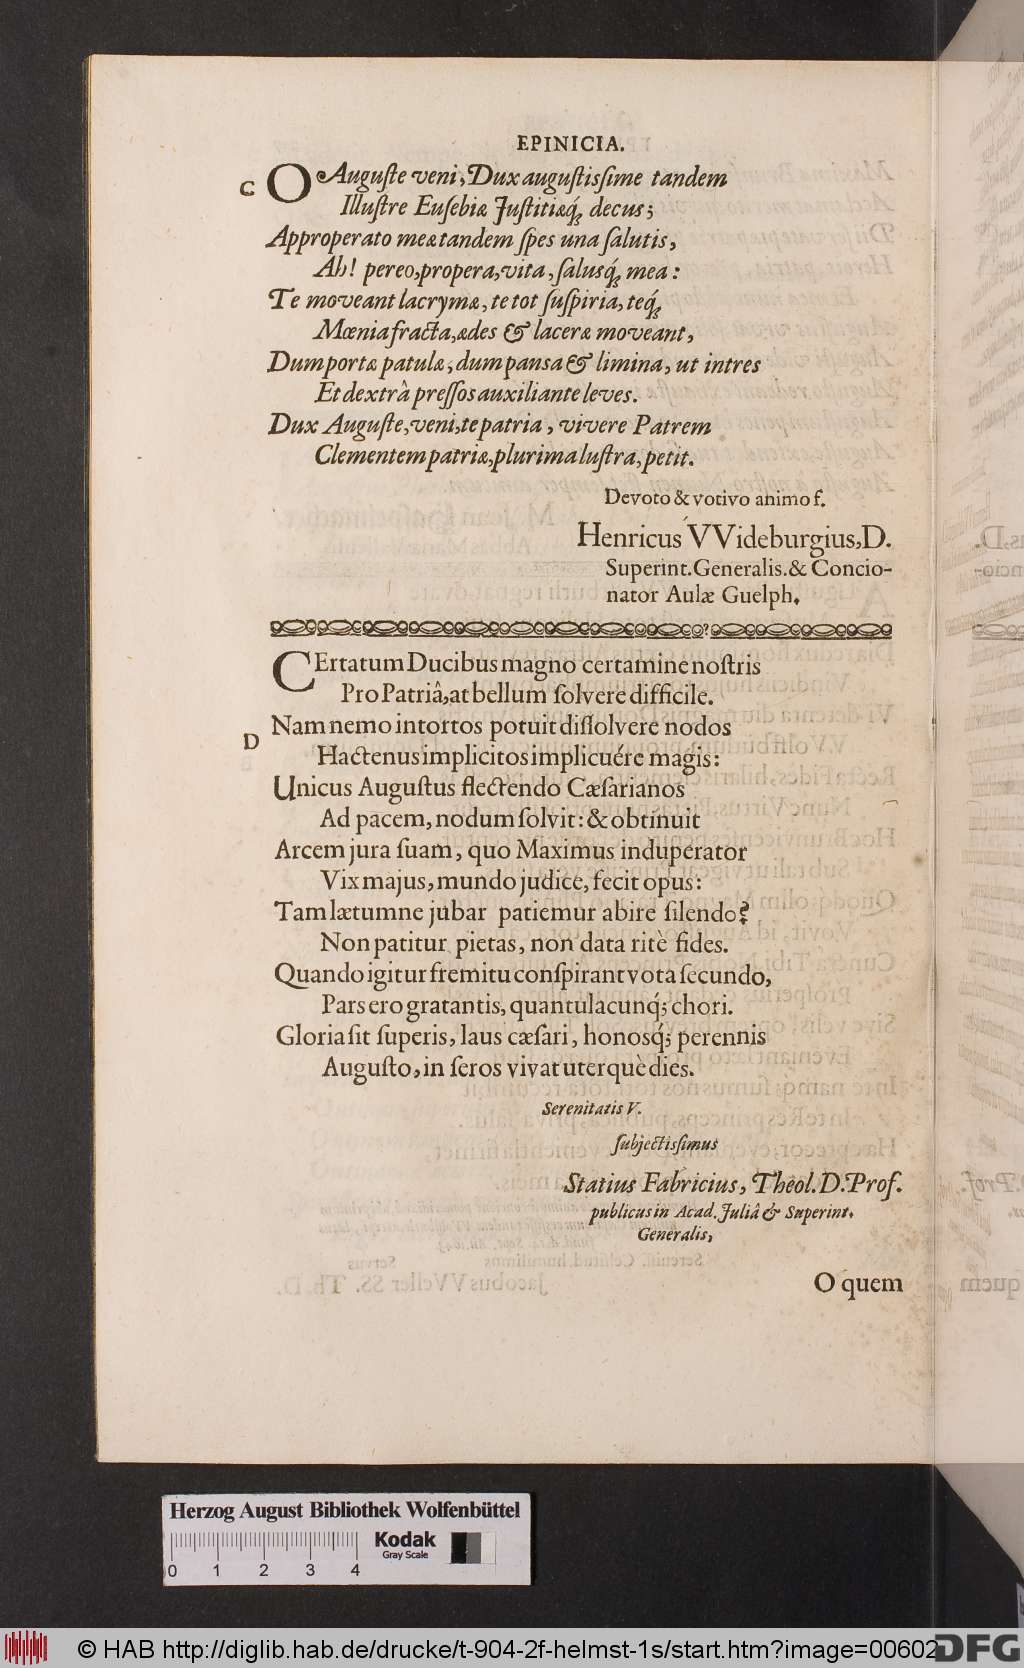 EPINICIA.
C
O Auguſte veni, Dux auguſtisſime tandem
Illuſtre Euſebiæ Juſtitiæq́; decus;
Approperato meæ tandem ſpes una ſalutis,
Ah! pereo, propera, vita, ſalusq́; mea:
Te moveant lacrymæ, te tot ſuſpiria, teq́;
Mœnia fracta, ædes & laceræ moveant,
Dum portæ patulæ, dum pansa & limina, ut intres
Et dextrâ preſſos auxiliante leves.
Dux Auguſte, veni, te patria, vivere Patrem
Clementem patriæ, plurima luſtra, petit.
Devoto & votivo animo f.
Henricus VVideburgius, D.
Superint. Generalis. & Concio-
nator Aulæ Guelph.
CErtatum Ducibus magno certamine noſtris
Pro Patriâ, at bellum ſolvere difficile.
Nam nemo intortos potuit diſſolvere nodos
D
Hactenus implicitos implicuére magis:
Unicus Auguſtus flectendo Cæſarianos
Ad pacem, nodum ſolvit: & obtinuit
Arcem jura ſuam, quo Maximus induperator
Vix majus, mundo judice, fecit opus:
Tam lætumne jubar patiemur abire ſilendo?
Non patitur pietas, non data ritè fides.
Quando igitur fremitu conſpirant vota ſecundo,
Pars ero gratantis, quantulacunq́; chori.
Gloria ſit ſuperis, laus cæſari, honosq́; perennis
Auguſto, in ſeros vivat uterquè dies.
Serenitatis V.
ſubjectisſimus
Statius Fabricius, Theol. D. Prof.
publicus in Acad. Juliâ & Superint.
Generalis,
O quem
Herzog August Bibliothek Wolfenbüttel
Kodak
Gray Scale
0 1 2 3 4
© HAB http://diglib.hab.de/drucke/t-904-2f-helmst-1s/start.htm?image=00602
DFG